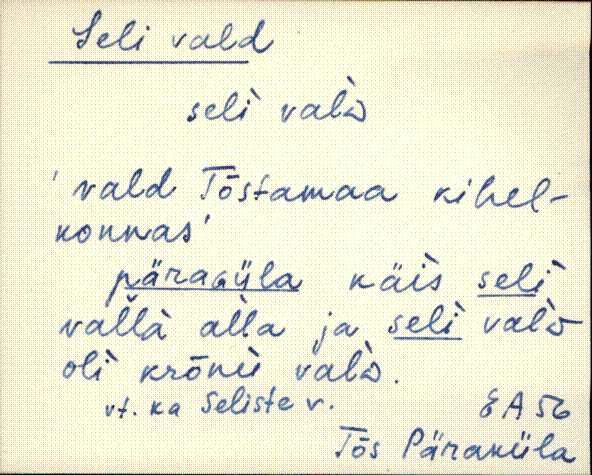 Seli vald
seli val̀D
'vald Tõstamaa kihel-
konnas'
päraGüla käis seli
vaľlà al̀la ja seli val̀D
oli krõnù val̀D.
vt. ka Seliste v. EA 56
Tõs Päraküla